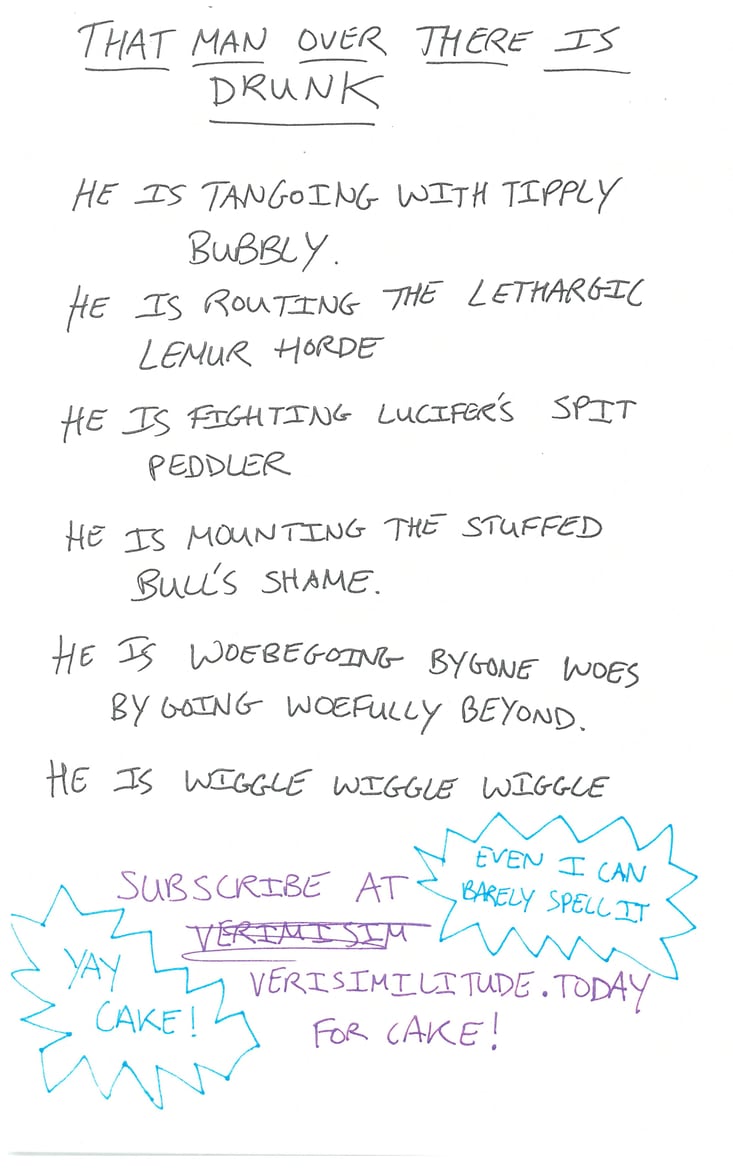 THAT MAN OVER THERE IS
DRUNK
HE IS TANGOING WITH TIPPLY
BUBBLY.
HE IS ROUTING THE LETHARGIC
LEMUR HORDE
HE IS FIGHTING LUCIFER'S SPIT
PEDDLER
HE IS MOUNTING THE STUFFED
BULL'S SHAME.
HE IS WOEBEGOING BYGONE WOES
BY GOING WOEFULLY BEYOND.
HE IS WIGGLE WIGGLE WIGGLE
EVEN I CAN
BARELY SPELL IT
SUBSCRIBE AT
VERIMISIM
VERISIMILITUDE.TODAY
FOR CAKE!
YAY
CAKE!